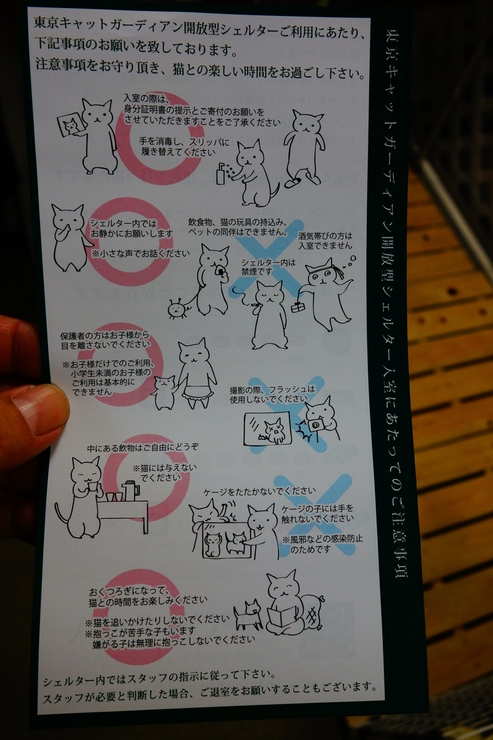 東京キャットガーディアン開放型シェルター入室にあたってのご注意事項
東京キャットガーディアン開放型シェルターご利用にあたり、
下記事項のお願いを致しております。
注意事項をお守り頂き、猫との楽しい時間をお過ごし下さい。
入室の際は、
身分証明書の提示とご寄付のお願いを
させていただきますことをご了承ください
手を消毒し、スリッパに
履き替えてください
シェルター内では
お静かにお願いします
※小さな声でお話ください
飲食物、猫の玩具の持込み、
ペットの同伴はできません。
酒気帯びの方は
入室できません
シェルター内は
禁煙です
保護者の方はお子様から
目を離さないでください
※お子様だけでのご利用、
小学生未満のお子様の
ご利用は基本的に
できません
撮影の際、フラッシュは
使用しないでください
中にある飲物はご自由にどうぞ
※猫には与えない
でください
ケージをたたかないでください
ケージの子には手を
触れないでください
※風邪などの感染防止
のためです
おくつろぎになって、
猫との時間をお楽しみください
※猫を追いかけたりしないでください
※抱っこが苦手な子もいます
嫌がる子は無理に抱っこしないでください
シェルター内ではスタッフの指示に従って下さい。
スタッフが必要と判断した場合、ご退室をお願いすることもございます。